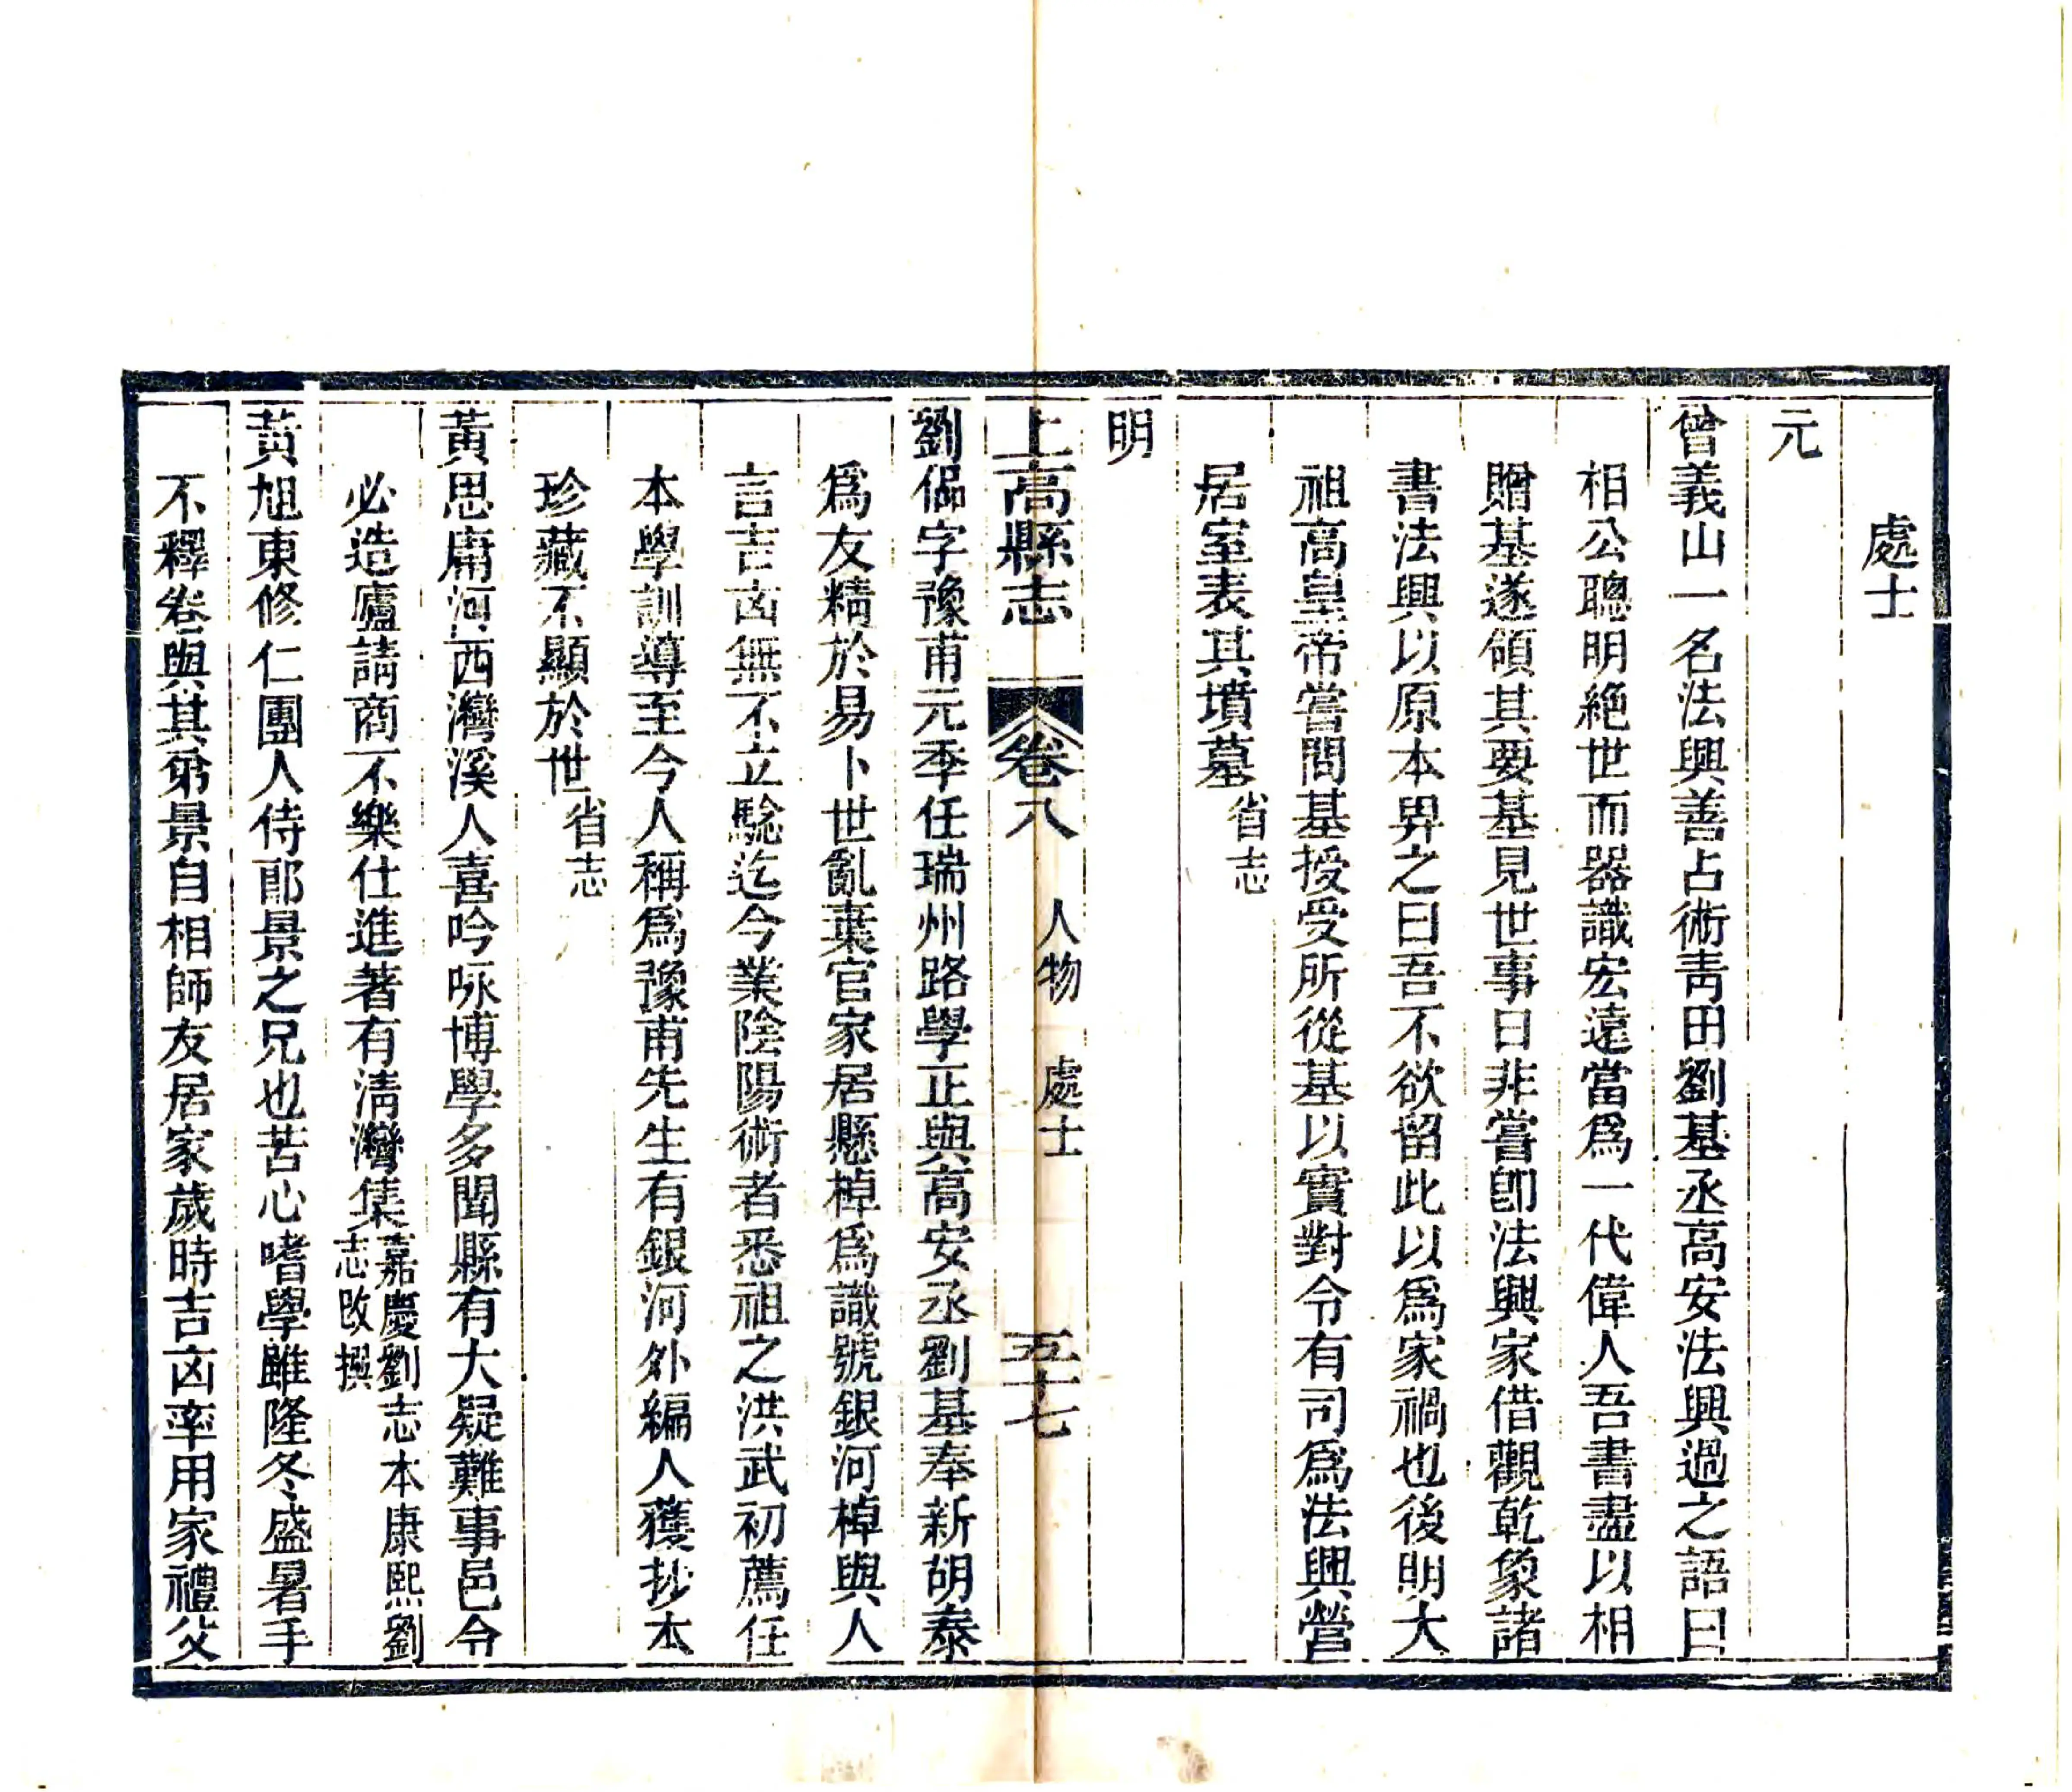 處士
元
曾義山一名法興善占術靑田劉基丞高安法興過之語曰
相公聰明絶世而器識宏遠當爲一代偉人吾書盡以相
贈基遂領其要基見世事日非嘗卽法興家借觀乾象諸
書法興以原本畀之曰吾不欲留此以爲家禍也後明大
祖高皇帝嘗問基授受所從基以實對令有司爲法興營
居室表其墳墓省志
明
上高縣志 卷八 人物 處士 五十七
劉偘字豫甫元季任瑞州路學正與高安丞劉基奉新胡泰
爲友精於易卜世亂棄官家居懸棹爲識號銀河棹與人
言吉凶無不立驗迄今業陰陽術者悉祖之洪武初薦任
本學訓導至今人稱爲豫甫先生有銀河外編人獲抄本
珍藏不顯於世省志
黃思庸河西灣溪人喜吟咏博學多聞縣有大疑難事邑令
必造廬請商不樂仕進著有淸灣集嘉慶劉志本康熙劉
志改撰
黃旭東修仁團人侍郞景之兄也苦心嗜學雖隆冬盛暑手
不釋卷與其弟景自相師友居家歲時吉凶率用家禮父